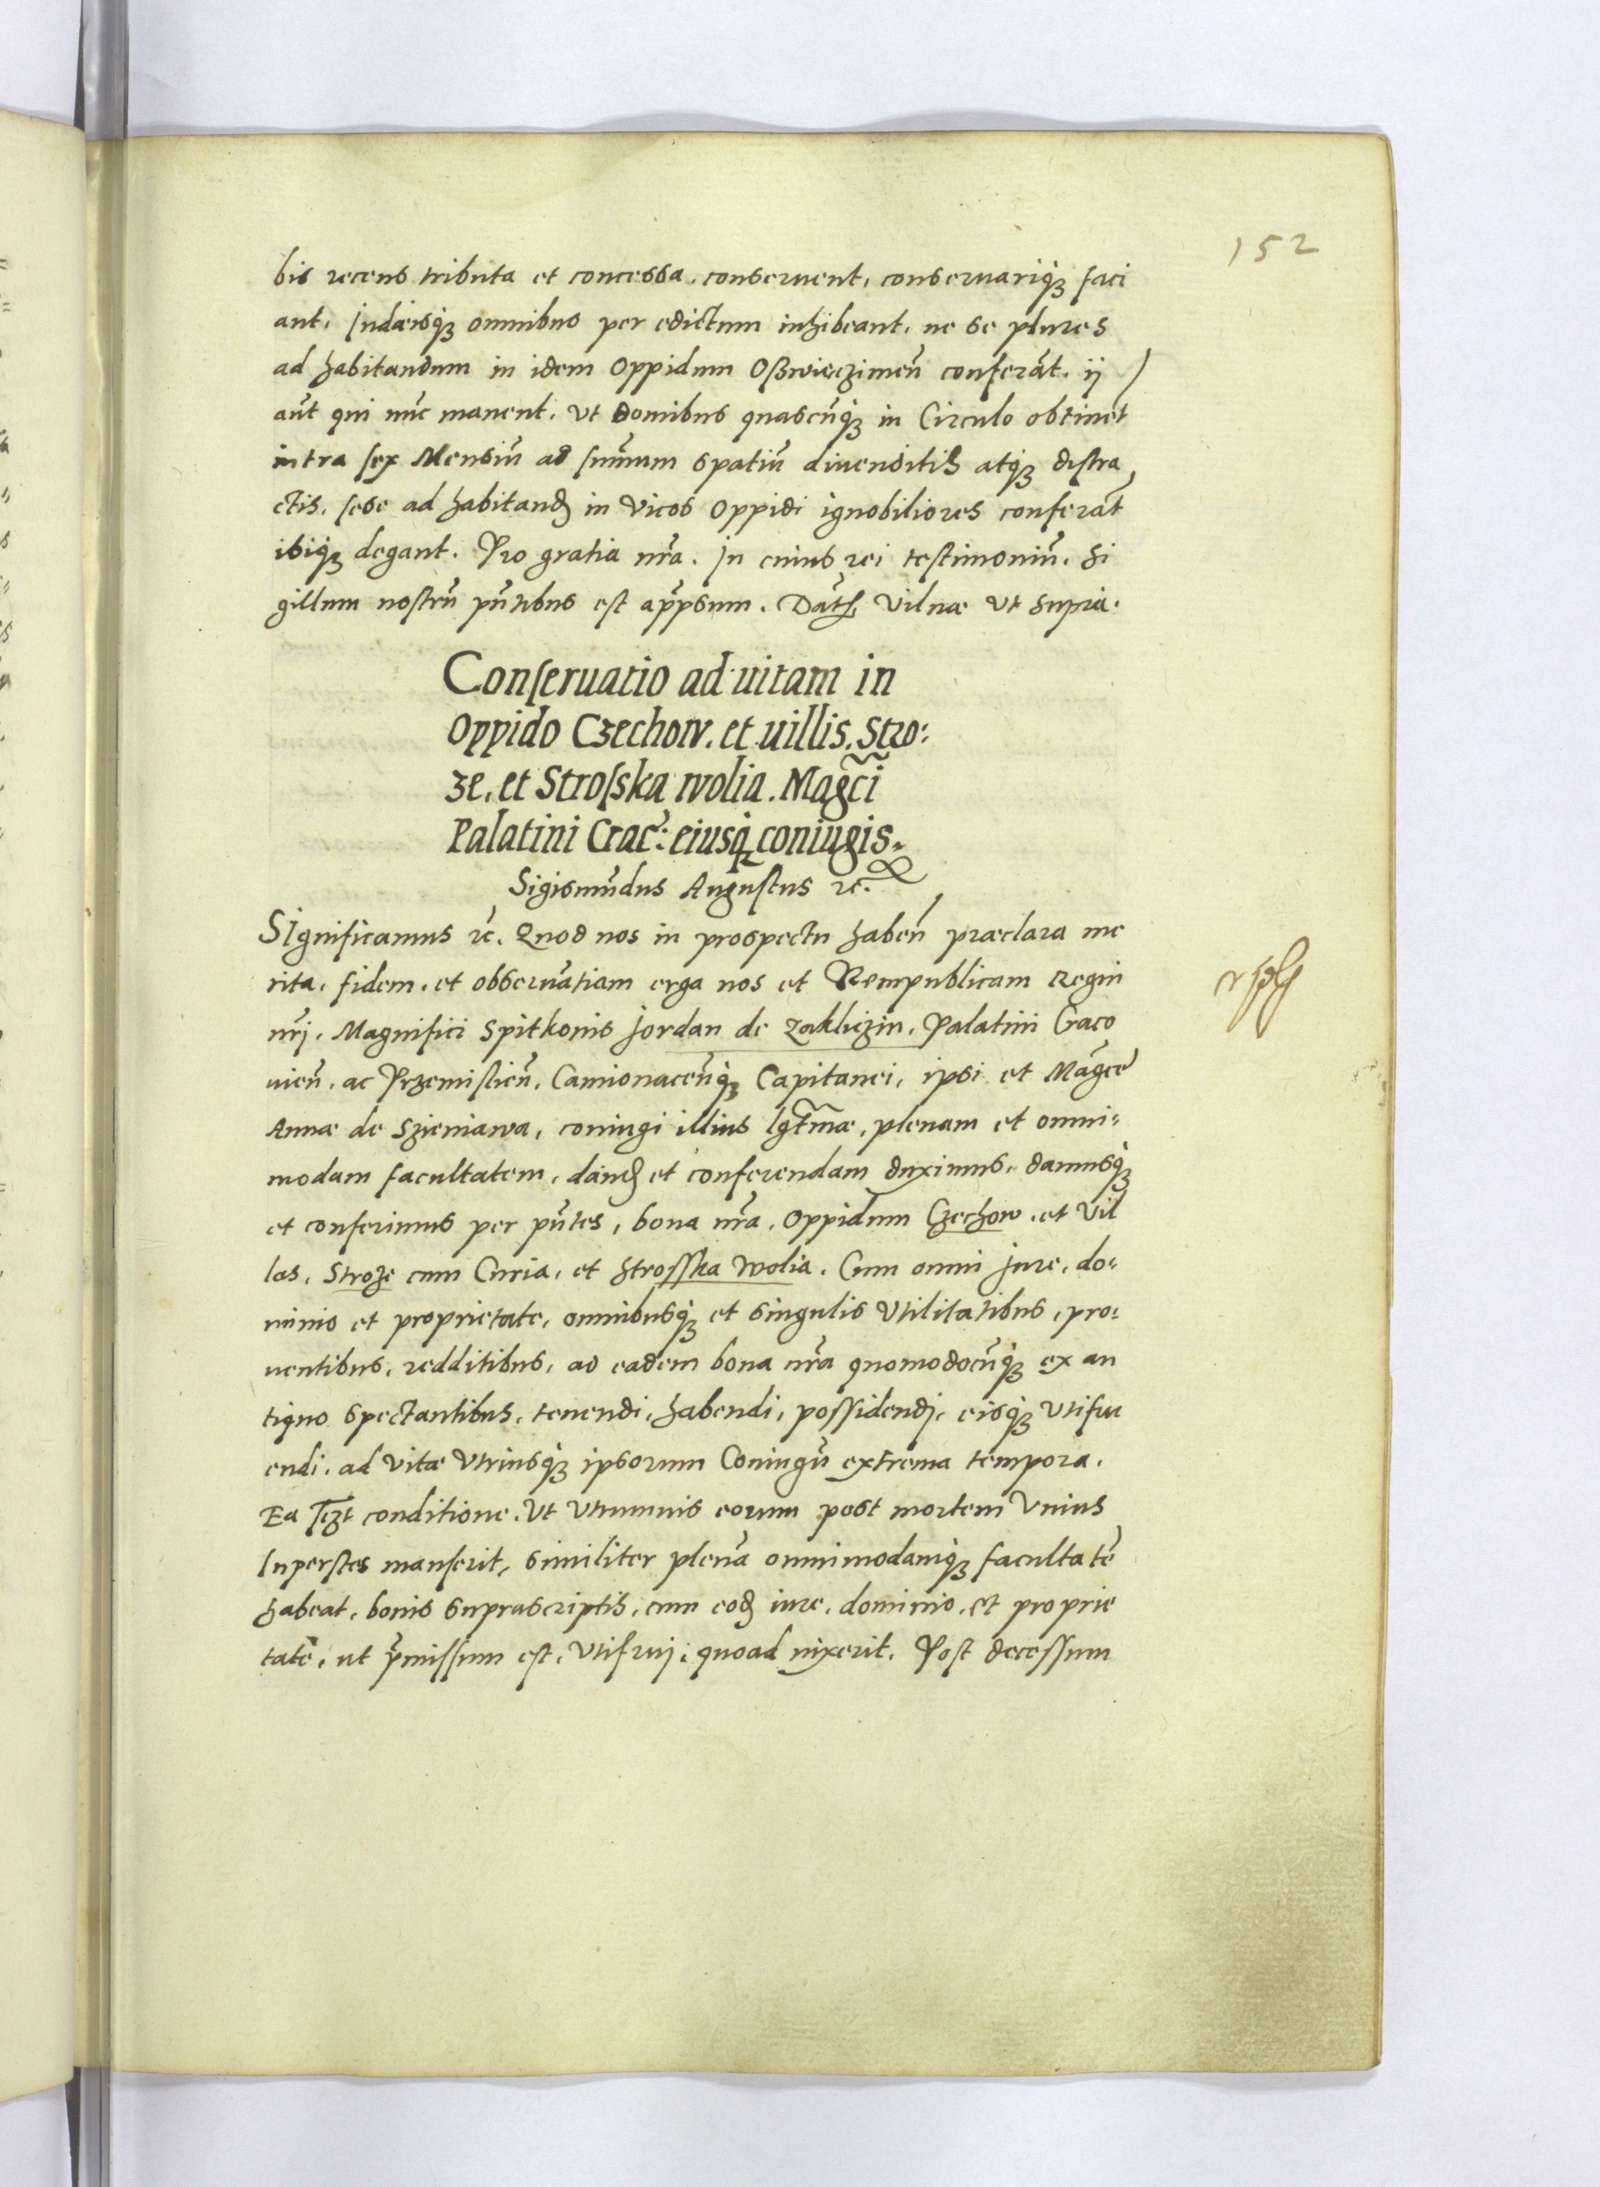 152
bis recens tributa et concessa, conseruent, conseruariq́ꝫ faci
ant. Judæisq́ꝫ omnibus per edictum inhibeant, ne se plures
ad habitandum in idem Oppidum Oßwięczimeñ conferãt. ij
aũt qui nũc manent, Vt domibus quascũq́ꝫ in Circulo obtinẽt
intra sex Mensiũ ad sum̃um spatiũ diuenditis atq́ꝫ distra
ctis, sese ad habitandꝫ in Vicos Oppidi ignobiliores conferãt
ibiq́ꝫ degant. Pro gratia nr̃a. In cuius rei testimoniũ. Si
gillum nostrũ pñtibus est app̃nsum. Datꝫ Vilnæ Vt supra.
Conseruatio ad uitam in
Oppido Czechow. et uillis. Stro:
ze, et Strosska wolia. Magc̃i
Palatini Crac: eiusq́ꝫ coniugis.
Sigismũdus Augustus ꝛc.
Significamus ꝛc. Quod nos in prospectu habeñ præclara me
rita, fidem, et obseruãtiam erga nos et Rempublicam Regni
nr̃j, Magnifici Spitkonis Jordan de Zakliczin, Palatini Craco
uieñ, ac Przemislieñ, Camionaceñq́ꝫ Capitanei, ipsi et Mãgcę
Annæ de Szieniawa, coniugi illius lgt̃mæ, plenam et omni:
modam facultatem, dandꝫ et conferendam duximus, damusq́ꝫ
et conferimus per pñtes, bona nr̃a, Oppidum Czechow, et Vil
las, Stroze cum Curia, et Strosska Wolia. Cum omni jure, do:
minio et proprietate, omnibusq́ꝫ et singulis Vtilitatibus, pro:
uentibus, redditibus, ad eadem bona nr̃a quomodocũq́ꝫ ex an
tiquo spectantibus, tenendi, habendi, possidendj, eisq́ꝫ Vtifru
endi, ad Vitæ Vtriusq́ꝫ ipsorum Coniugũ extrema tempora.
Ea conditione, Vt Vtrumuis eorum post mortem Vnius
superstes manserit, similiter plenã omnimodamq́ꝫ facultatẽ
habeat, bonis suprascriptis, cum eodꝫ iure, dominio, et proprie
tate, ut p̃missum est, Vtifruj, quoad uixerit. Post decessum